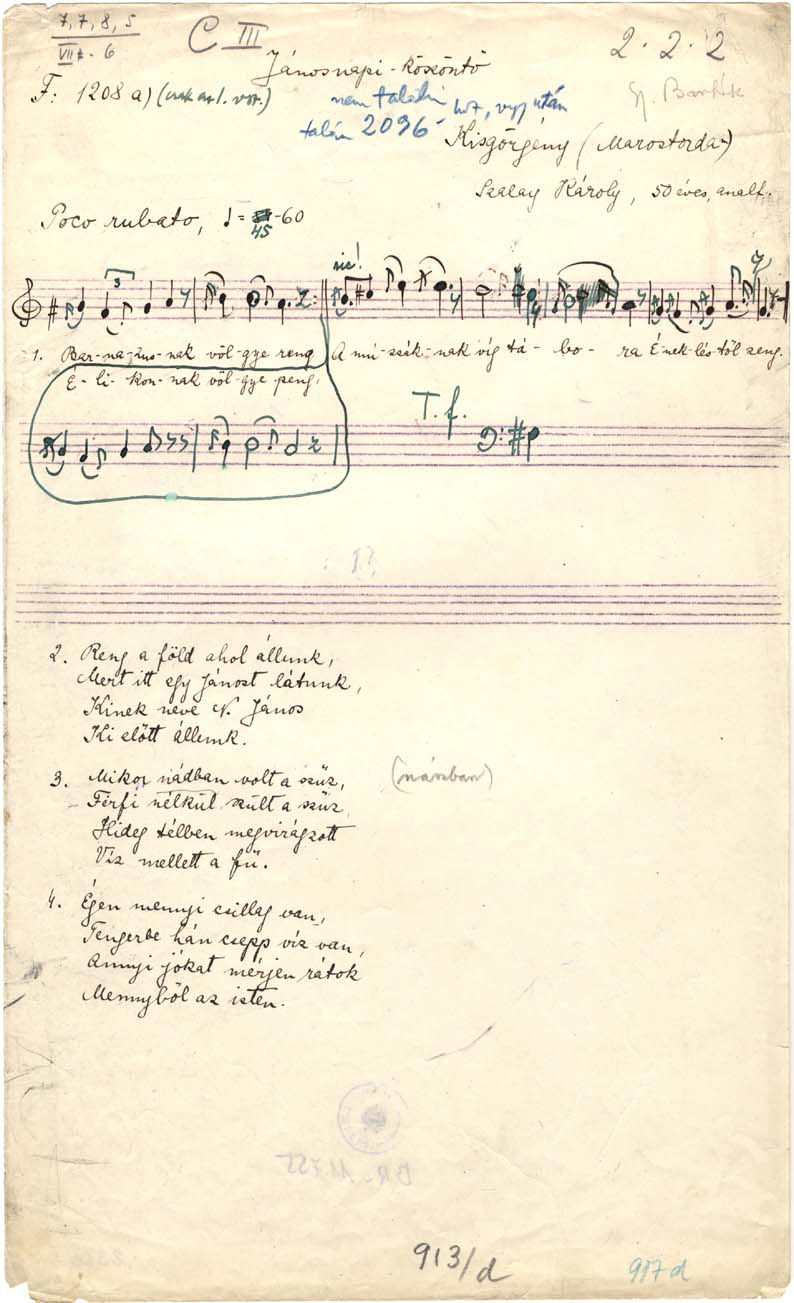 7, 7, 8, 5
VII - 6
C III
2 . 2 . 2
Jánosnapi-köszöntő
F: 1208 a) (csak az 1. vsz.)
nem találni
talán 2096
után
Gy. Bartók
Kisgörgény (Marostorda)
Szalay Károly, 50 éves, analf.
Poco rubato, ♩= -60
45
sic!
3
1. Bar-na-zus-nak völ-gye reng A mú-zsák-nak víg tá-bo-ra É-nek-lés-től zeng.
É-li-kon-nak völ-gye peng,
T. f.
2. Reng a föld ahol állunk,
Mert itt egy Jánost látunk,
Kinek neve N. János
Ki előtt állunk.
3. Mikor nádban volt a szűz,
(nászban)
Férfi nélkül szült a szűz
Hideg télben megvirágzott
Víz mellett a fű.
4. Égen mennyi csillag van,
Tengerbe hán csepp víz van,
Annyi jókat mérjen rátok
Mennyből az isten.
BR. 11755
913/d
917 d